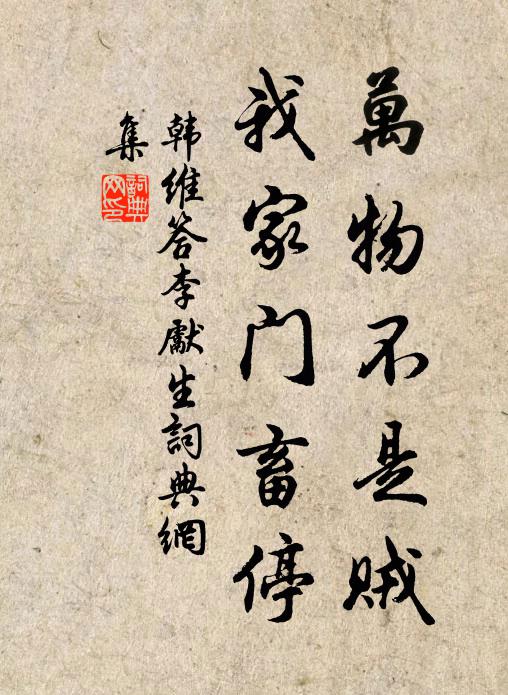 萬物不是賊
我家門畜停
韩維答李獻生詞典網
集
詞典
网印